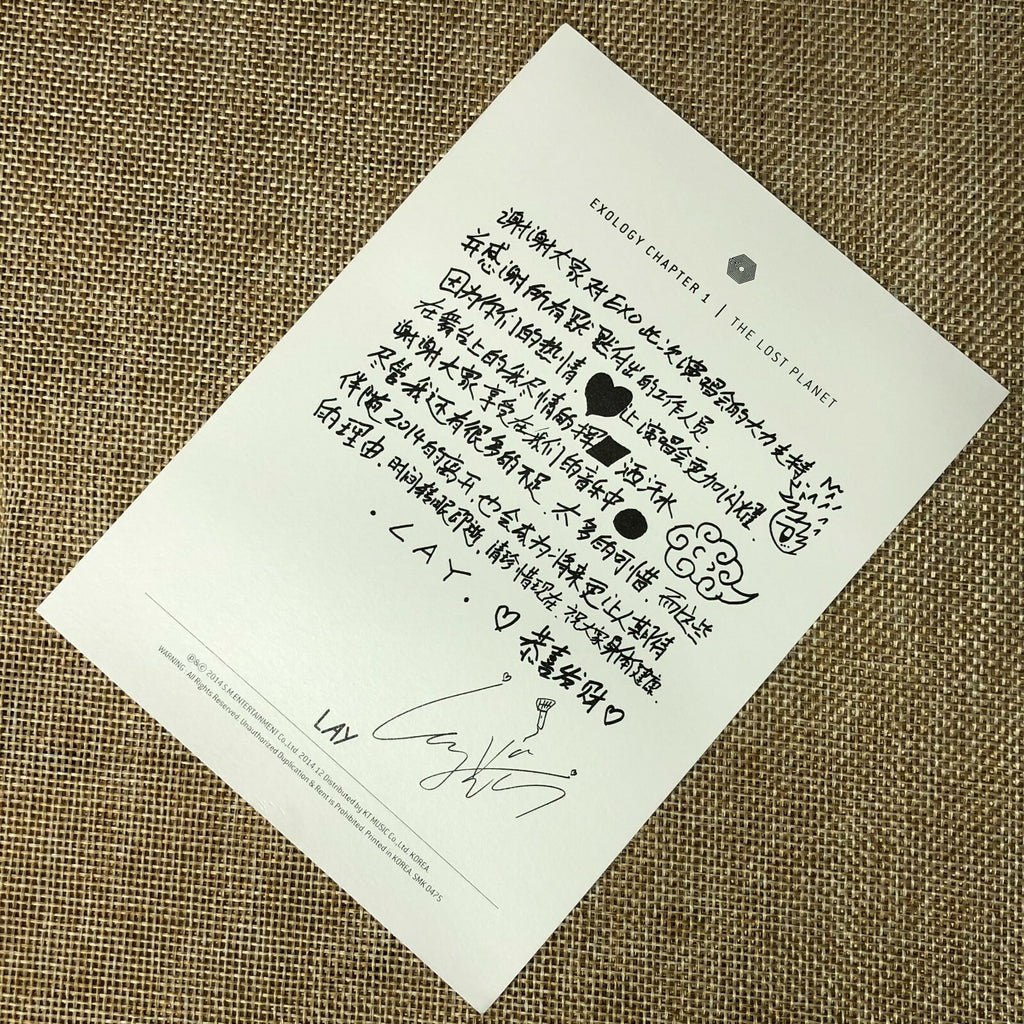 EXOLOGY CHAPTER 1 | THE LOST PLANET
谢谢大家对EXO此次演唱会的大力支持
并感谢所有默默付出的工作人员.
因为你们的热情 让演唱会更加闪耀.
在舞台上的我尽情的挥 洒汗水
谢谢大家享受在我们的音乐中
尽管我还有很多的不足 太多的可惜. 而这些
伴随2014的离开, 也会成为将来更让人期待
的理由. 时间转眼即逝, 请珍惜现在. 祝大家身体健康.
· LAY ·
♡ 恭喜发财♡
LAY
℗&© 2014 S.M.ENTERTAINMENT Co.,Ltd. 2014.12 Distributed by KT MUSIC Co.,Ltd. KOREA.
WARNING : All Rights Reserved. Unauthorized Duplication & Rent is Prohibited. Printed in KOREA. SMK 0425